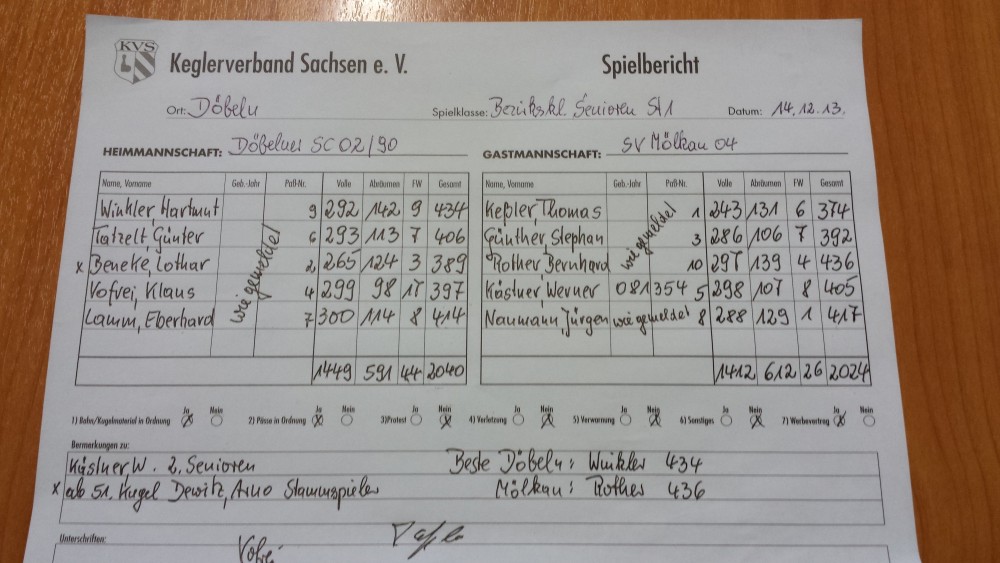 KVS
Keglerverband Sachsen e. V. Spielbericht
Ort: Döbeln Spielklasse: Bezirkskl. Senioren St1 Datum: 14.12.13.
HEIMMANNSCHAFT: Döbelner SC 02/90 GASTMANNSCHAFT: SV Mölkau 04
Name, Vorname Geb.-Jahr Paß-Nr. Volle Abräumen FW Gesamt Name, Vorname Geb.-Jahr Paß-Nr. Volle Abräumen FW Gesamt
Winkler Hartmut 9 292 142 9 434 Keßler, Thomas 1 243 131 6 374
Tatzelt, Günter 6 293 113 7 406 Günther, Stephan 3 286 106 7 392
x Beneke, Lothar wie gemeldet 2 265 124 3 389 Rother, Bernhard wie gemeldet 10 297 139 4 436
Vofrei, Klaus 4 299 98 17 397 Kästner, Werner 081354 5 298 107 8 405
Lamm, Eberhard 7 300 114 8 414 Naumann, Jürgen wie gemeldet 8 288 129 1 417
1449 591 44 2040 1412 612 26 2024
1) Bahn/Kugelmaterial in Ordnung Ja Nein 2) Pässe in Ordnung Ja Nein 3) Protest Ja Nein 4) Verletzung Ja Nein 5) Verwarnung Ja Nein 6) Sonstiges Ja Nein 7) Werbevertrag Ja Nein
Bemerkungen zu:
Kästner W. 2. Senioren Beste Döbeln: Winkler 434
x ab 51. Kugel Dewitz, Arno Stammspieler Mölkau: Rother 436
Unterschriften:
Vofrei